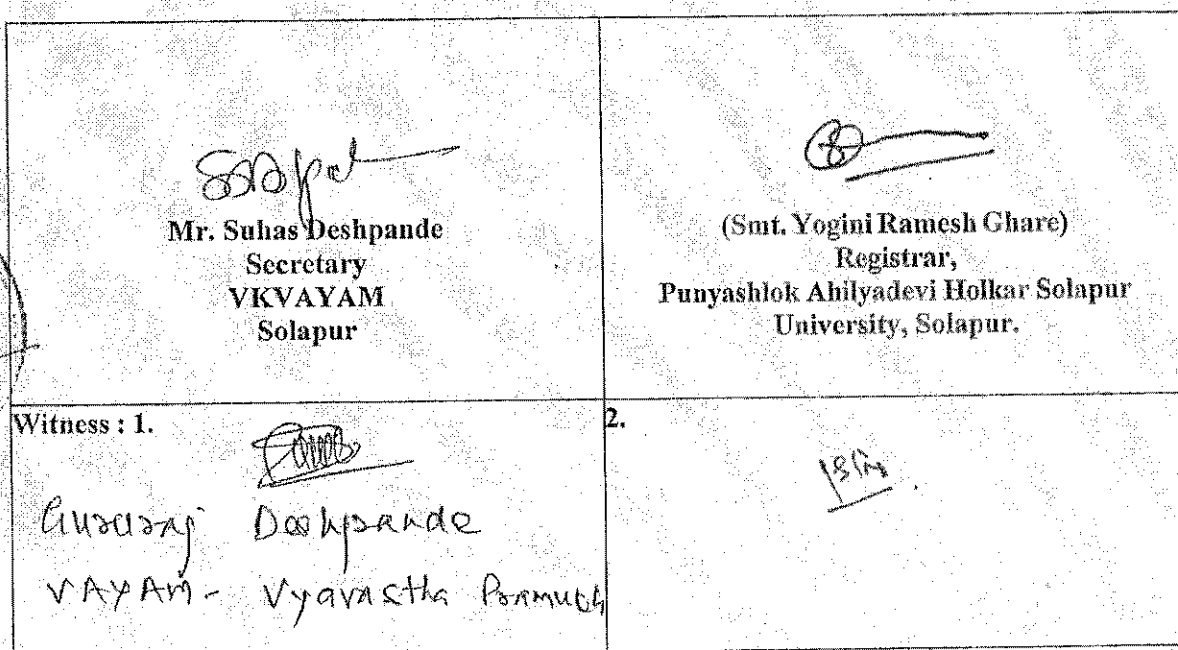 Mr. Suhas Deshpande
Secretary
VKVAYAM
Solapur
(Smt. Yogini Ramesh Ghare)
Registrar,
Punyashlok Ahilyadevi Holkar Solapur
University, Solapur.
Witness : 1.
Deshpande
VAYAM - Vyavastha Pramukh
2.